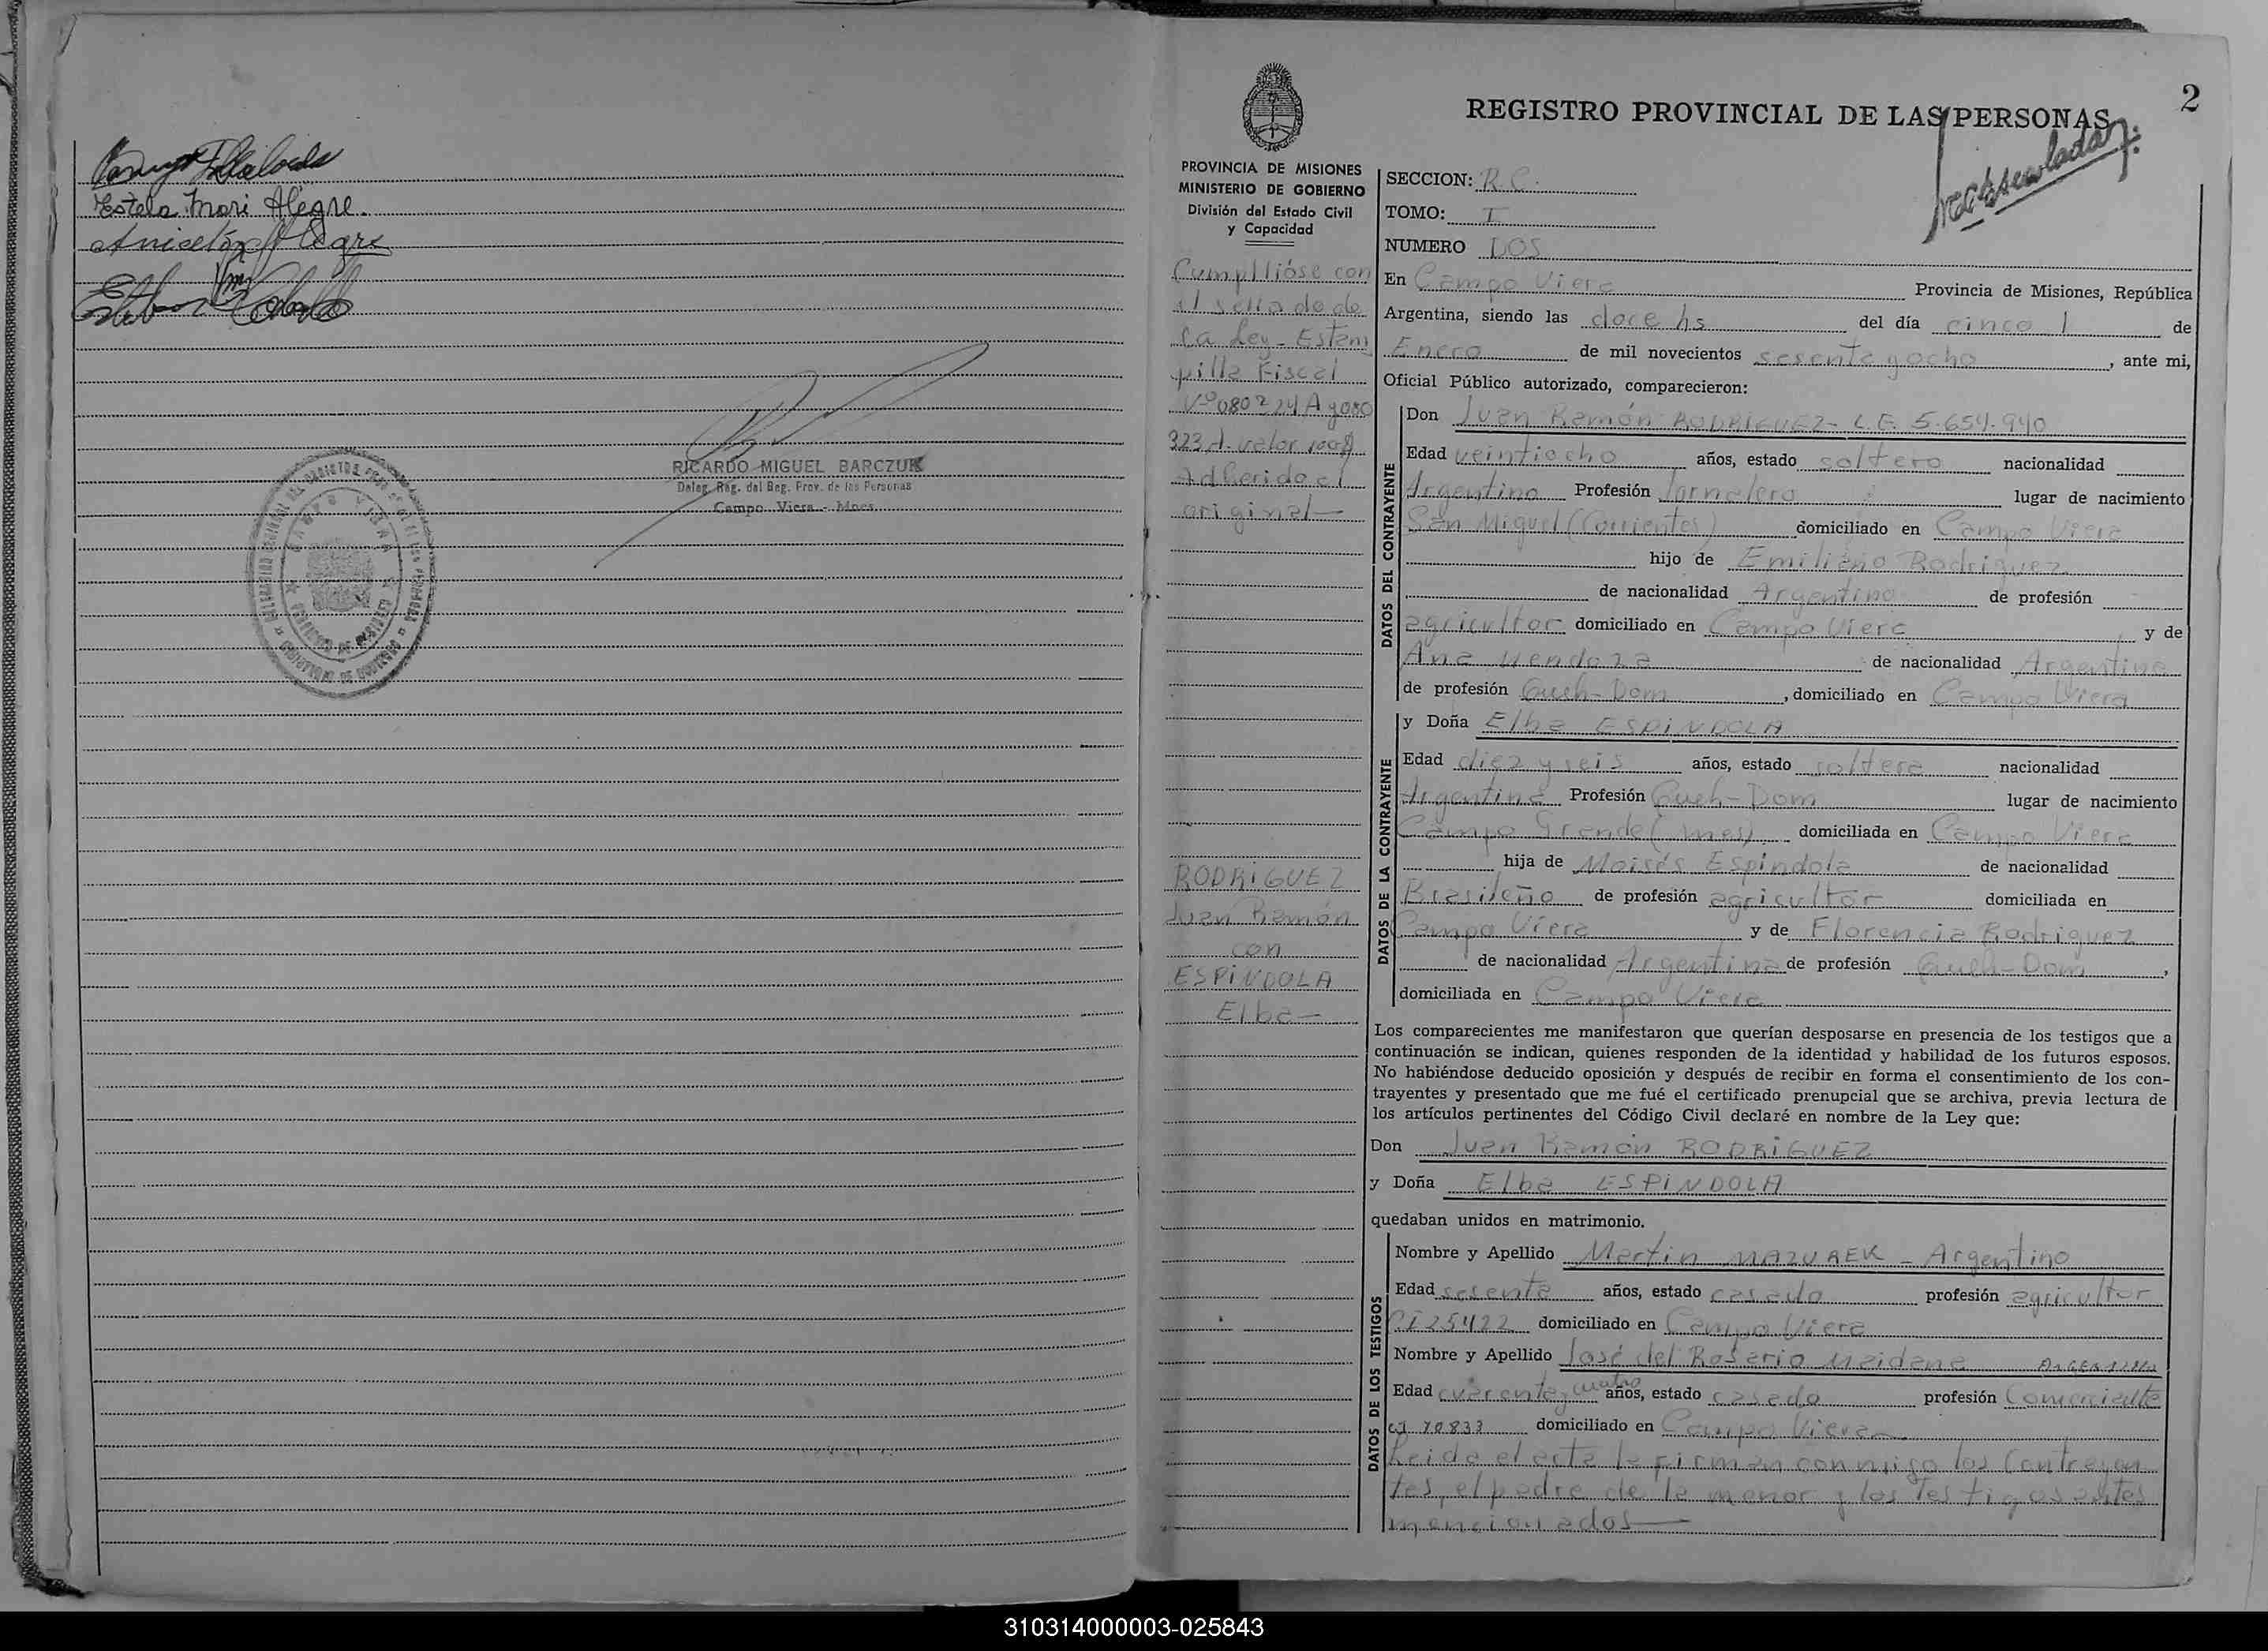 Estela Mari Alegre.
RICARDO MIGUEL BARCZUK
Deleg. Reg. del Reg. Prov. de las Personas
Campo Viera - Mnes.
CAMPO VIERA
2
REGISTRO PROVINCIAL DE LAS PERSONAS
PROVINCIA DE MISIONES
MINISTERIO DE GOBIERNO
División del Estado Civil
y Capacidad
Cumpllióse con
el sellado de
la Ley - Estam
pilla Fiscal
adherido al
original
RODRIGUEZ
Juan Ramón
con
ESPINDOLA
Elba
SECCION: R.C.
TOMO: I
NUMERO DOS
En Campo Viera Provincia de Misiones, República
Argentina, siendo las doce hs del día cinco de
Enero de mil novecientos sesenta y ocho, ante mi,
Oficial Público autorizado, comparecieron:
DATOS DEL CONTRAYENTE
Don Juan Ramón RODRIGUEZ - L.E. 5.654.940
Edad veintiocho años, estado soltero nacionalidad
Argentino Profesión Jornalero lugar de nacimiento
San Miguel (Corrientes) domiciliado en Campo Viera
hijo de Emiliano Rodriguez
de nacionalidad Argentino de profesión
agricultor domiciliado en Campo Viera y de
Ana Mendoza de nacionalidad Argentina
de profesión Queh-Dom, domiciliado en Campo Viera
DATOS DE LA CONTRAYENTE
y Doña Elba ESPINDOLA
Edad diez y seis años, estado soltera nacionalidad
Argentina Profesión Queh-Dom lugar de nacimiento
Campo Grande (Mnes) domiciliada en Campo Viera
hija de Moisés Espindola de nacionalidad
Brasileño de profesión agricultor domiciliada en
Campo Viera y de Florencia Rodriguez
de nacionalidad Argentina de profesión Queh-Dom,
domiciliada en Campo Viera
Los comparecientes me manifestaron que querían desposarse en presencia de los testigos que a
continuación se indican, quienes responden de la identidad y habilidad de los futuros esposos.
No habiéndose deducido oposición y después de recibir en forma el consentimiento de los con-
trayentes y presentado que me fué el certificado prenupcial que se archiva, previa lectura de
los artículos pertinentes del Código Civil declaré en nombre de la Ley que:
Don Juan Ramón RODRIGUEZ
y Doña Elba ESPINDOLA
quedaban unidos en matrimonio.
DATOS DE LOS TESTIGOS
Nombre y Apellido Martin MAZUREK - Argentino
Edad sesenta años, estado casado profesión agricultor
CI 25422 domiciliado en Campo Viera
Nombre y Apellido José del Rosario Maidana ARGENTINO
Edad cuarenta y cuatro años, estado casado profesión Comerciante
CI 70833 domiciliado en Campo Viera
Leida el acta la firman conmigo los Contrayen
tes, el padre de la menor y los Testigos antes
mencionados
310314000003-025843